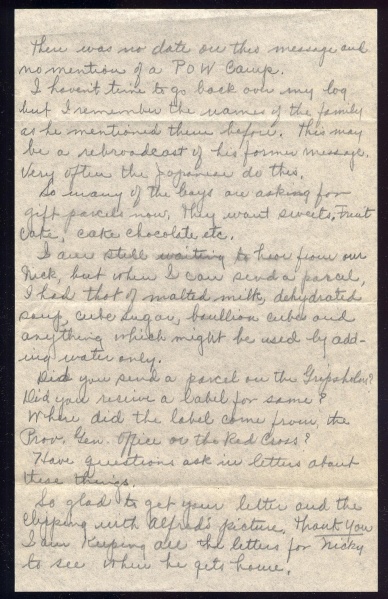 There was no date on this message and
no mention of a POW Camp.
I havent time to go back over my log
but I remember the names of the family
as he mentioned them before. This may
be a rebroadcast of his former message.
Very often the Japanese do this.
So many of the boys are asking for
gift parcels now, they want sweets, Fruit
Cake, cake chocolate etc.
I am still waiting to hear from our
Nick, but when I can send a parcel,
I had that of malted milk, dehydrated
soup, cube sugar, boullion cubes and
anything which might be used by add-
ing water only.
Did you send a parcel on the Gripsholm?
Did you receive a label for same?
Where did the label come from, the
Prov. Gen. Office or the Red Cross?
Have questions ask in letters about
these things.
So glad to get your letter and the
clipping with Alfred's picture. Thank You
I am keeping all the letters for Nicky
to see when he gets home.